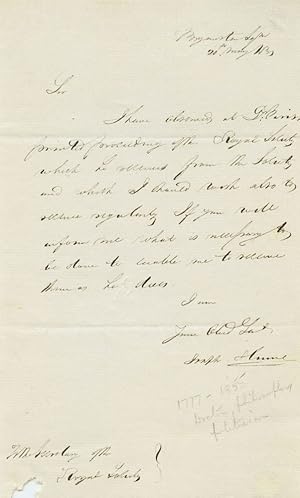 Bryanston Sqre
Sir
I have observed at Dr
printed proceedings of the Royal Society
which he receives from the Society
and which I should wish also to
receive regularly If you will
inform me what is necessary to
be done to enable me to receive
them as he does.
I am
Your Obed Servt
Joseph Hume
1777 - 1855
philosopher
politician
To the Secretary of the
Royal Society